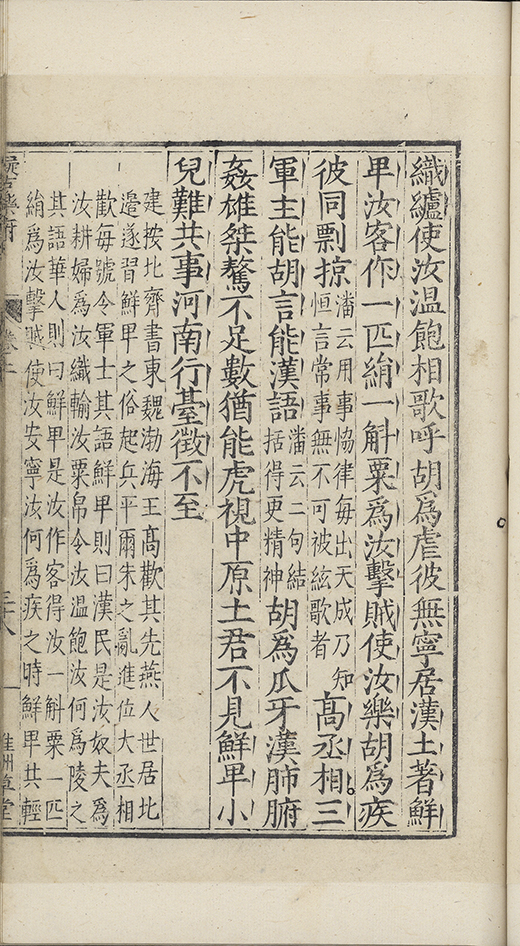 織纑使汝温飽相歌呼胡為虐彼無寧居漢土著鮮
卑汝客作一匹絹一斛粟為汝擊賊使汝樂胡為疾
彼同剽掠潘云用事恊律每出天成乃知恒言常事無不可被絃歌者髙丞相三
軍主能胡言能漢語潘云二句結括得更精神胡為瓜牙漢肺腑
姦雄桀驁不足數猶能虎視中原土君不見鮮卑小
兒難共事河南行臺徵不至
建按北齊書東魏渤海王髙歡其先燕人世居北
邉遂習鮮卑之俗起兵平爾朱之亂進位大丞相
歡每號令軍士其語鮮卑則曰漢民是汝奴夫為
汝耕婦為汝織輸汝粟帛令汝温飽汝何為陵之
其語華人則曰鮮卑是汝作客得汝一斛粟一匹
絹為汝擊賊使汝安寧汝何為疾之時鮮卑共輕